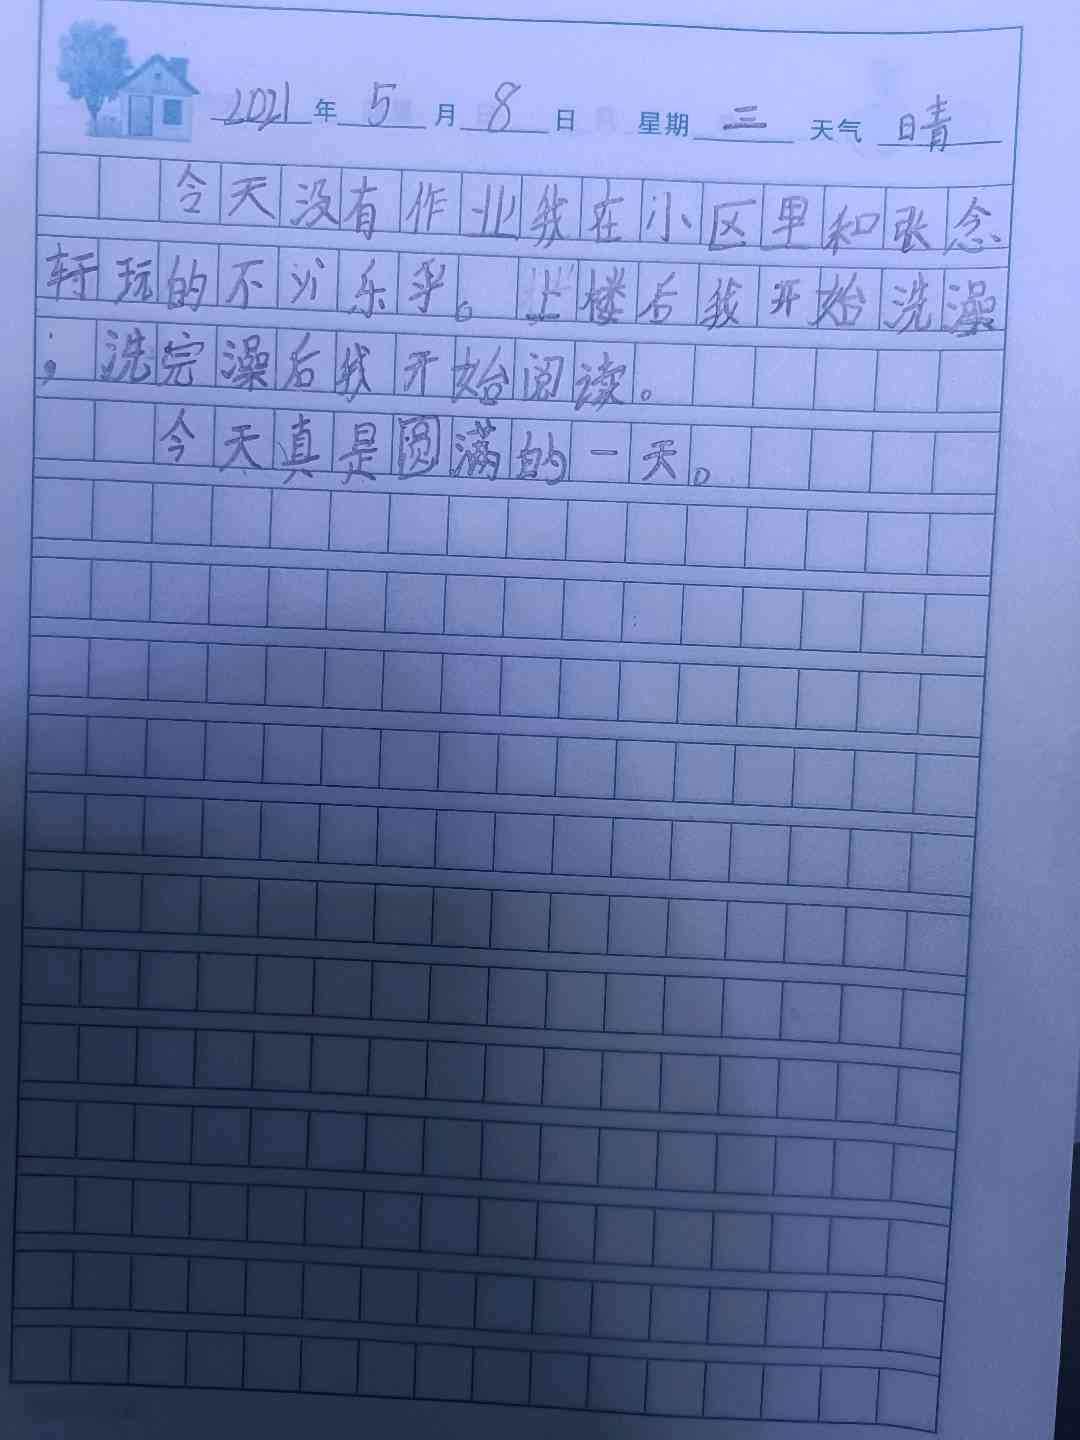 2021年5月8日 星期三 天气 晴
今天没有作业我在小区里和张念
轩玩的不以乐乎。上楼后我开始洗澡
；洗完澡后我开始阅读。
今天真是圆满的一天。